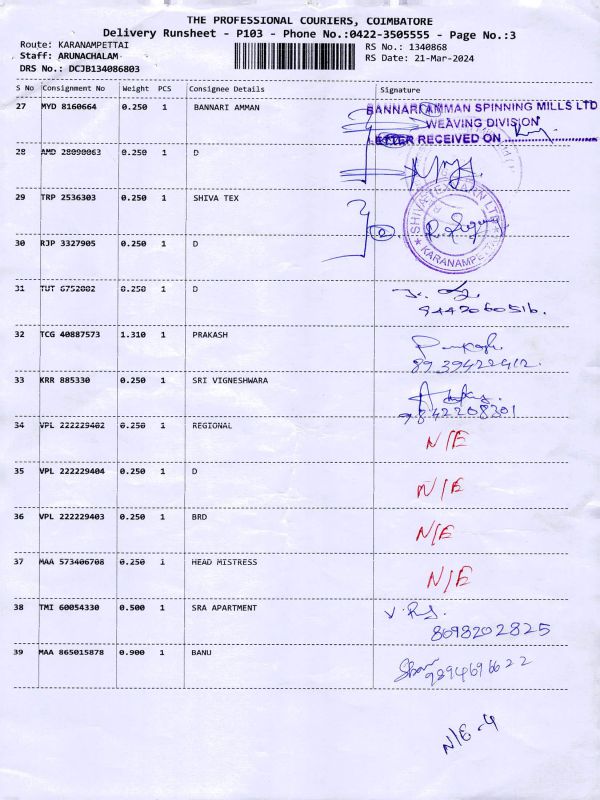 THE PROFESSIONAL COURIERS, COIMBATORE
Delivery Runsheet - P103 - Phone No.:0422-3505555 - Page No.:3
Route: KARANAMPETTAI
RS No.: 1340868
Staff: ARUNACHALAM
RS Date: 21-Mar-2024
DRS No.: DCJB134086803
S No Consignment No Weight PCS Consignee Details Signature
27 MYD 8160664 0.250 1 BANNARI AMMAN
BANNARI AMMAN SPINNING MILLS LTD
WEAVING DIVISION
LETTER RECEIVED ON
28 AMD 28090063 0.250 1 D
29 TRP 2536303 0.250 1 SHIVA TEX
KARANAMPETTAI
30 RJP 3327905 0.250 1 D
31 TUT 6752002 0.250 1 D
9442060516.
32 TCG 40887573 1.310 1 PRAKASH
Prakash
8939422412.
33 KRR 885330 0.250 1 SRI VIGNESHWARA
9842208301
34 VPL 222229402 0.250 1 REGIONAL
N/E
35 VPL 222229404 0.250 1 D
N/E
36 VPL 222229403 0.250 1 BRD
N/E
37 MAA 573406708 0.250 1 HEAD MISTRESS
N/E
38 TMI 60054330 0.500 1 SRA APARTMENT
8098202825
39 MAA 865015878 0.900 1 BANU
9894696622
N/E -4